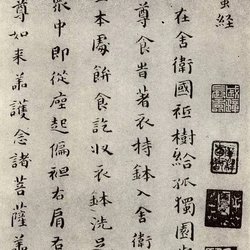 蜜經
在舍衛國祇樹給孤獨園
尊食旹著衣持鉢入舍衛
至本處飯食訖収衣鉢洗足
衆中即從座起偏袒右肩右
尊如来善護念諸菩薩善